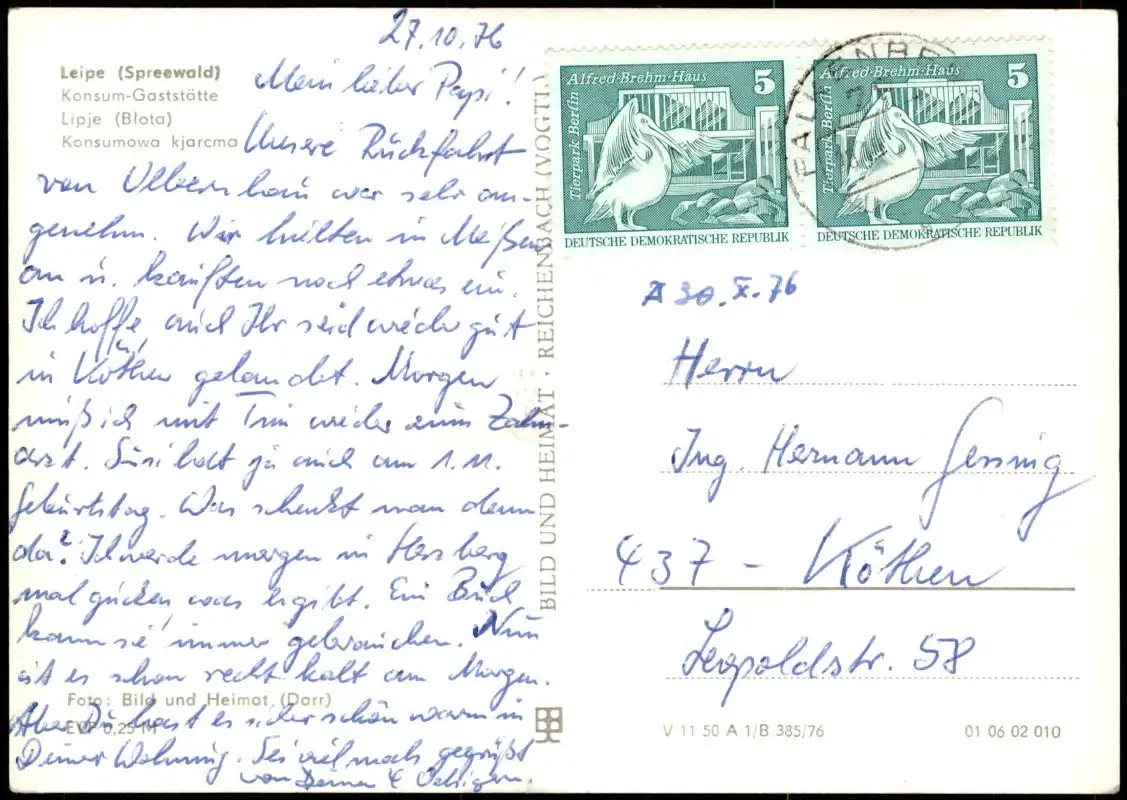 27.10.76
Leipe (Spreewald)
Konsum-Gaststätte
Lipje (Błota)
Konsumowa kjarcma
Mein lieber Papi!
Unsere Rückfahrt
von Olbernhau war sehr an-
genehm. Wir hielten in Meißen
an u. kauften noch etwas ein.
Ich hoffe, auch Ihr seid wieder gut
in Köthen gelandet. Morgen
muß ich mit Tim wieder zum Zahn-
arzt. Susi hat ja auch am 1.11.
Geburtstag. Was schenkt man denn
da? Ich werde morgen in Herzberg
mal gucken, was es gibt. Ein Buch
kann sie immer gebrauchen. Nun
ist es schon recht kalt am Morgen.
Aber Du hast es sicher schön warm in
Deiner Wohnung. Sei vielmals gegrüßt
von Deinen 4
Foto: Bild und Heimat (Darr)
EVP 0,25 M
BILD UND HEIMAT · REICHENBACH (VOGTL)
Tierpark Berlin
Alfred-Brehm-Haus
5
DEUTSCHE DEMOKRATISCHE REPUBLIK
Tierpark Berlin
Alfred-Brehm-Haus
5
DEUTSCHE DEMOKRATISCHE REPUBLIK
30.X.76
Herrn
Ing. Hermann Gessing
437 - Köthen
Leopoldstr. 58
V 11 50 A 1/B 385/76
01 06 02 010